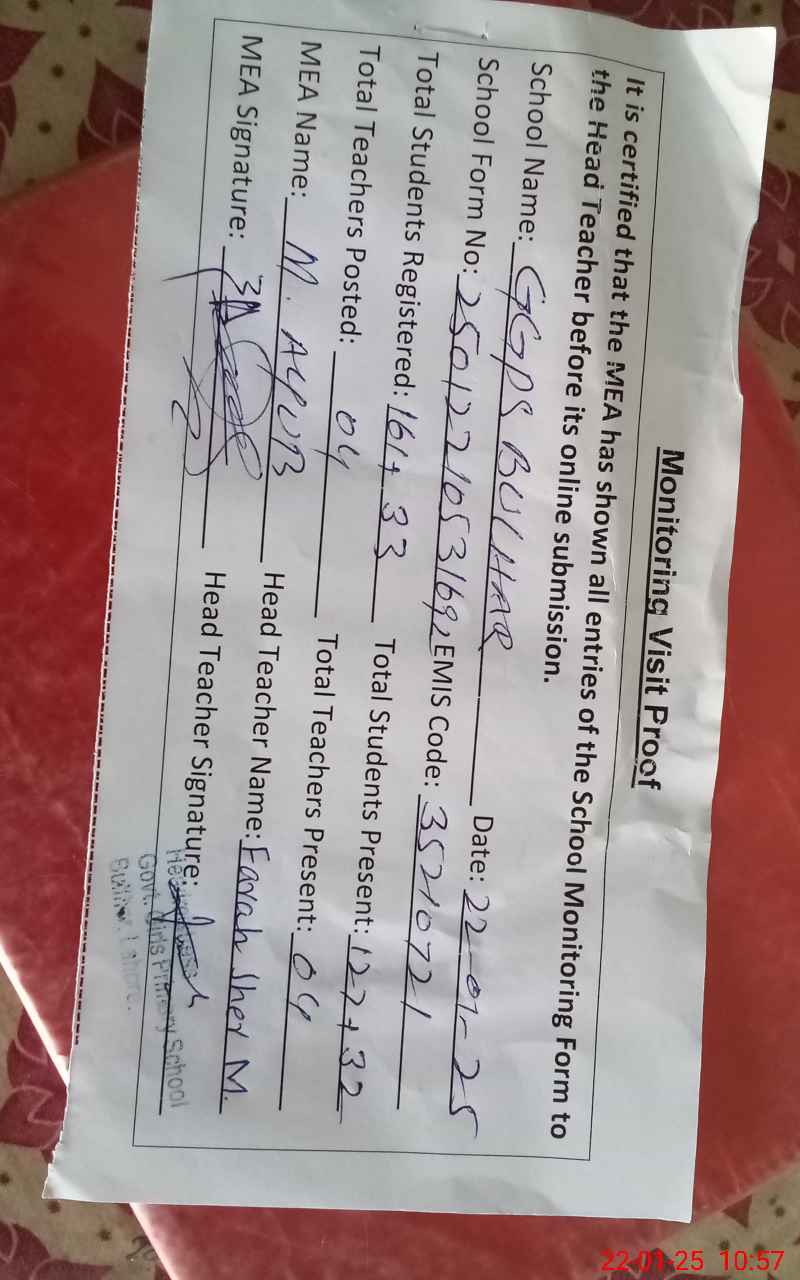 Monitoring Visit Proof
It is certified that the MEA has shown all entries of the School Monitoring Form to
the Head Teacher before its online submission.
School Name: GGPS BULHAR Date: 22-01-25
School Form No: 2501221053169 EMIS Code: 35210721
Total Students Registered: 161+33 Total Students Present: 127+32
Total Teachers Posted: 04 Total Teachers Present: 04
MEA Name: M. AYUB Head Teacher Name: Farah Sher M.
MEA Signature: Head Teacher Signature:
Govt. Girls Primary School
Lahore.
22-01-25 10:57